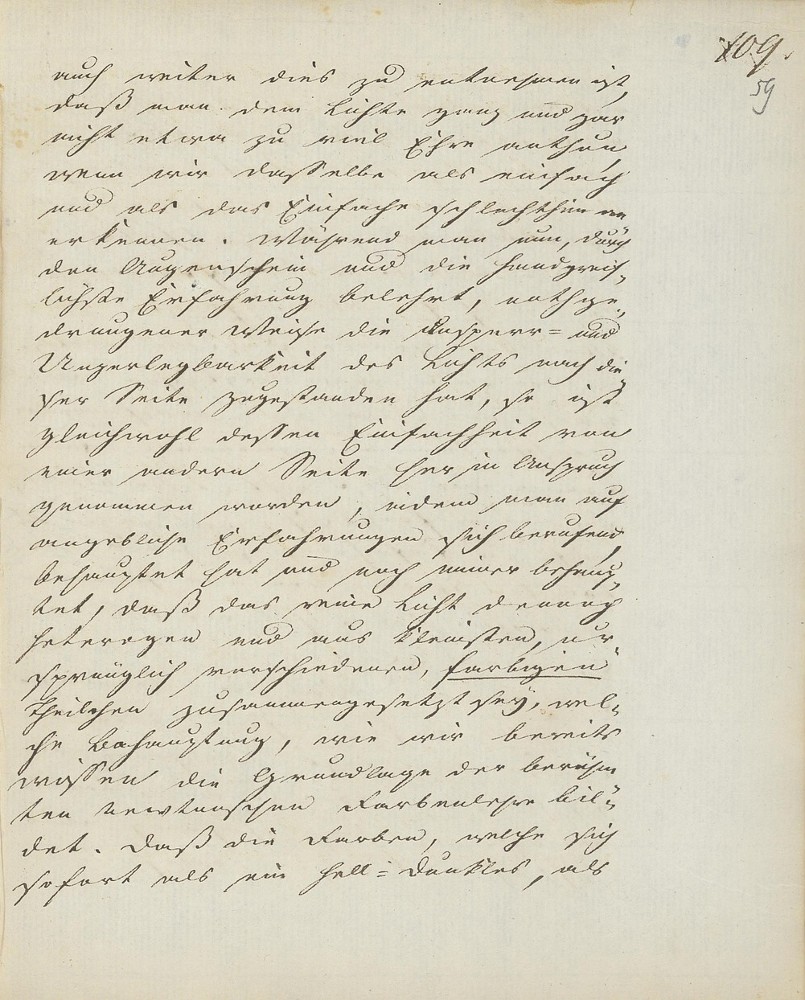 109.
59
auch weiter dies zu entnehmen ist,
daß man dem Lichte ganz und gar
nicht etwa zu viel Ehre anthun,
wenn wir dasselbe als einfach
und als das Einfache schlechthin an
erkennen. Während man nun, durch
den Augenschein und die handgreif-
lichste Erfahrung belehrt, nothge-
drungener Weise die Unsperr- und
Unzerlegbarkeit des Lichts nach die
ser Seite zugestanden hat, so ist
gleichwohl dessen Einfachheit von
einer andern Seite her in Anspruch
genommen worden, indem man auf
angebliche Erfahrungen sich berufend,
behauptet hat und noch immer behaup-
tet, daß das reine Licht dennoch
heterogen und aus kleinsten, ur-
sprünglich verschiedenen, farbigen
Theilchen zusammengesetzt sey, wel-
che Behauptung, wie wir bereits
wissen die Grundlage der berühm
ten newtonschen Farbenlehre bil-
det. Daß die Farben, welche sich
sofort als ein Hell-Dunkles, als